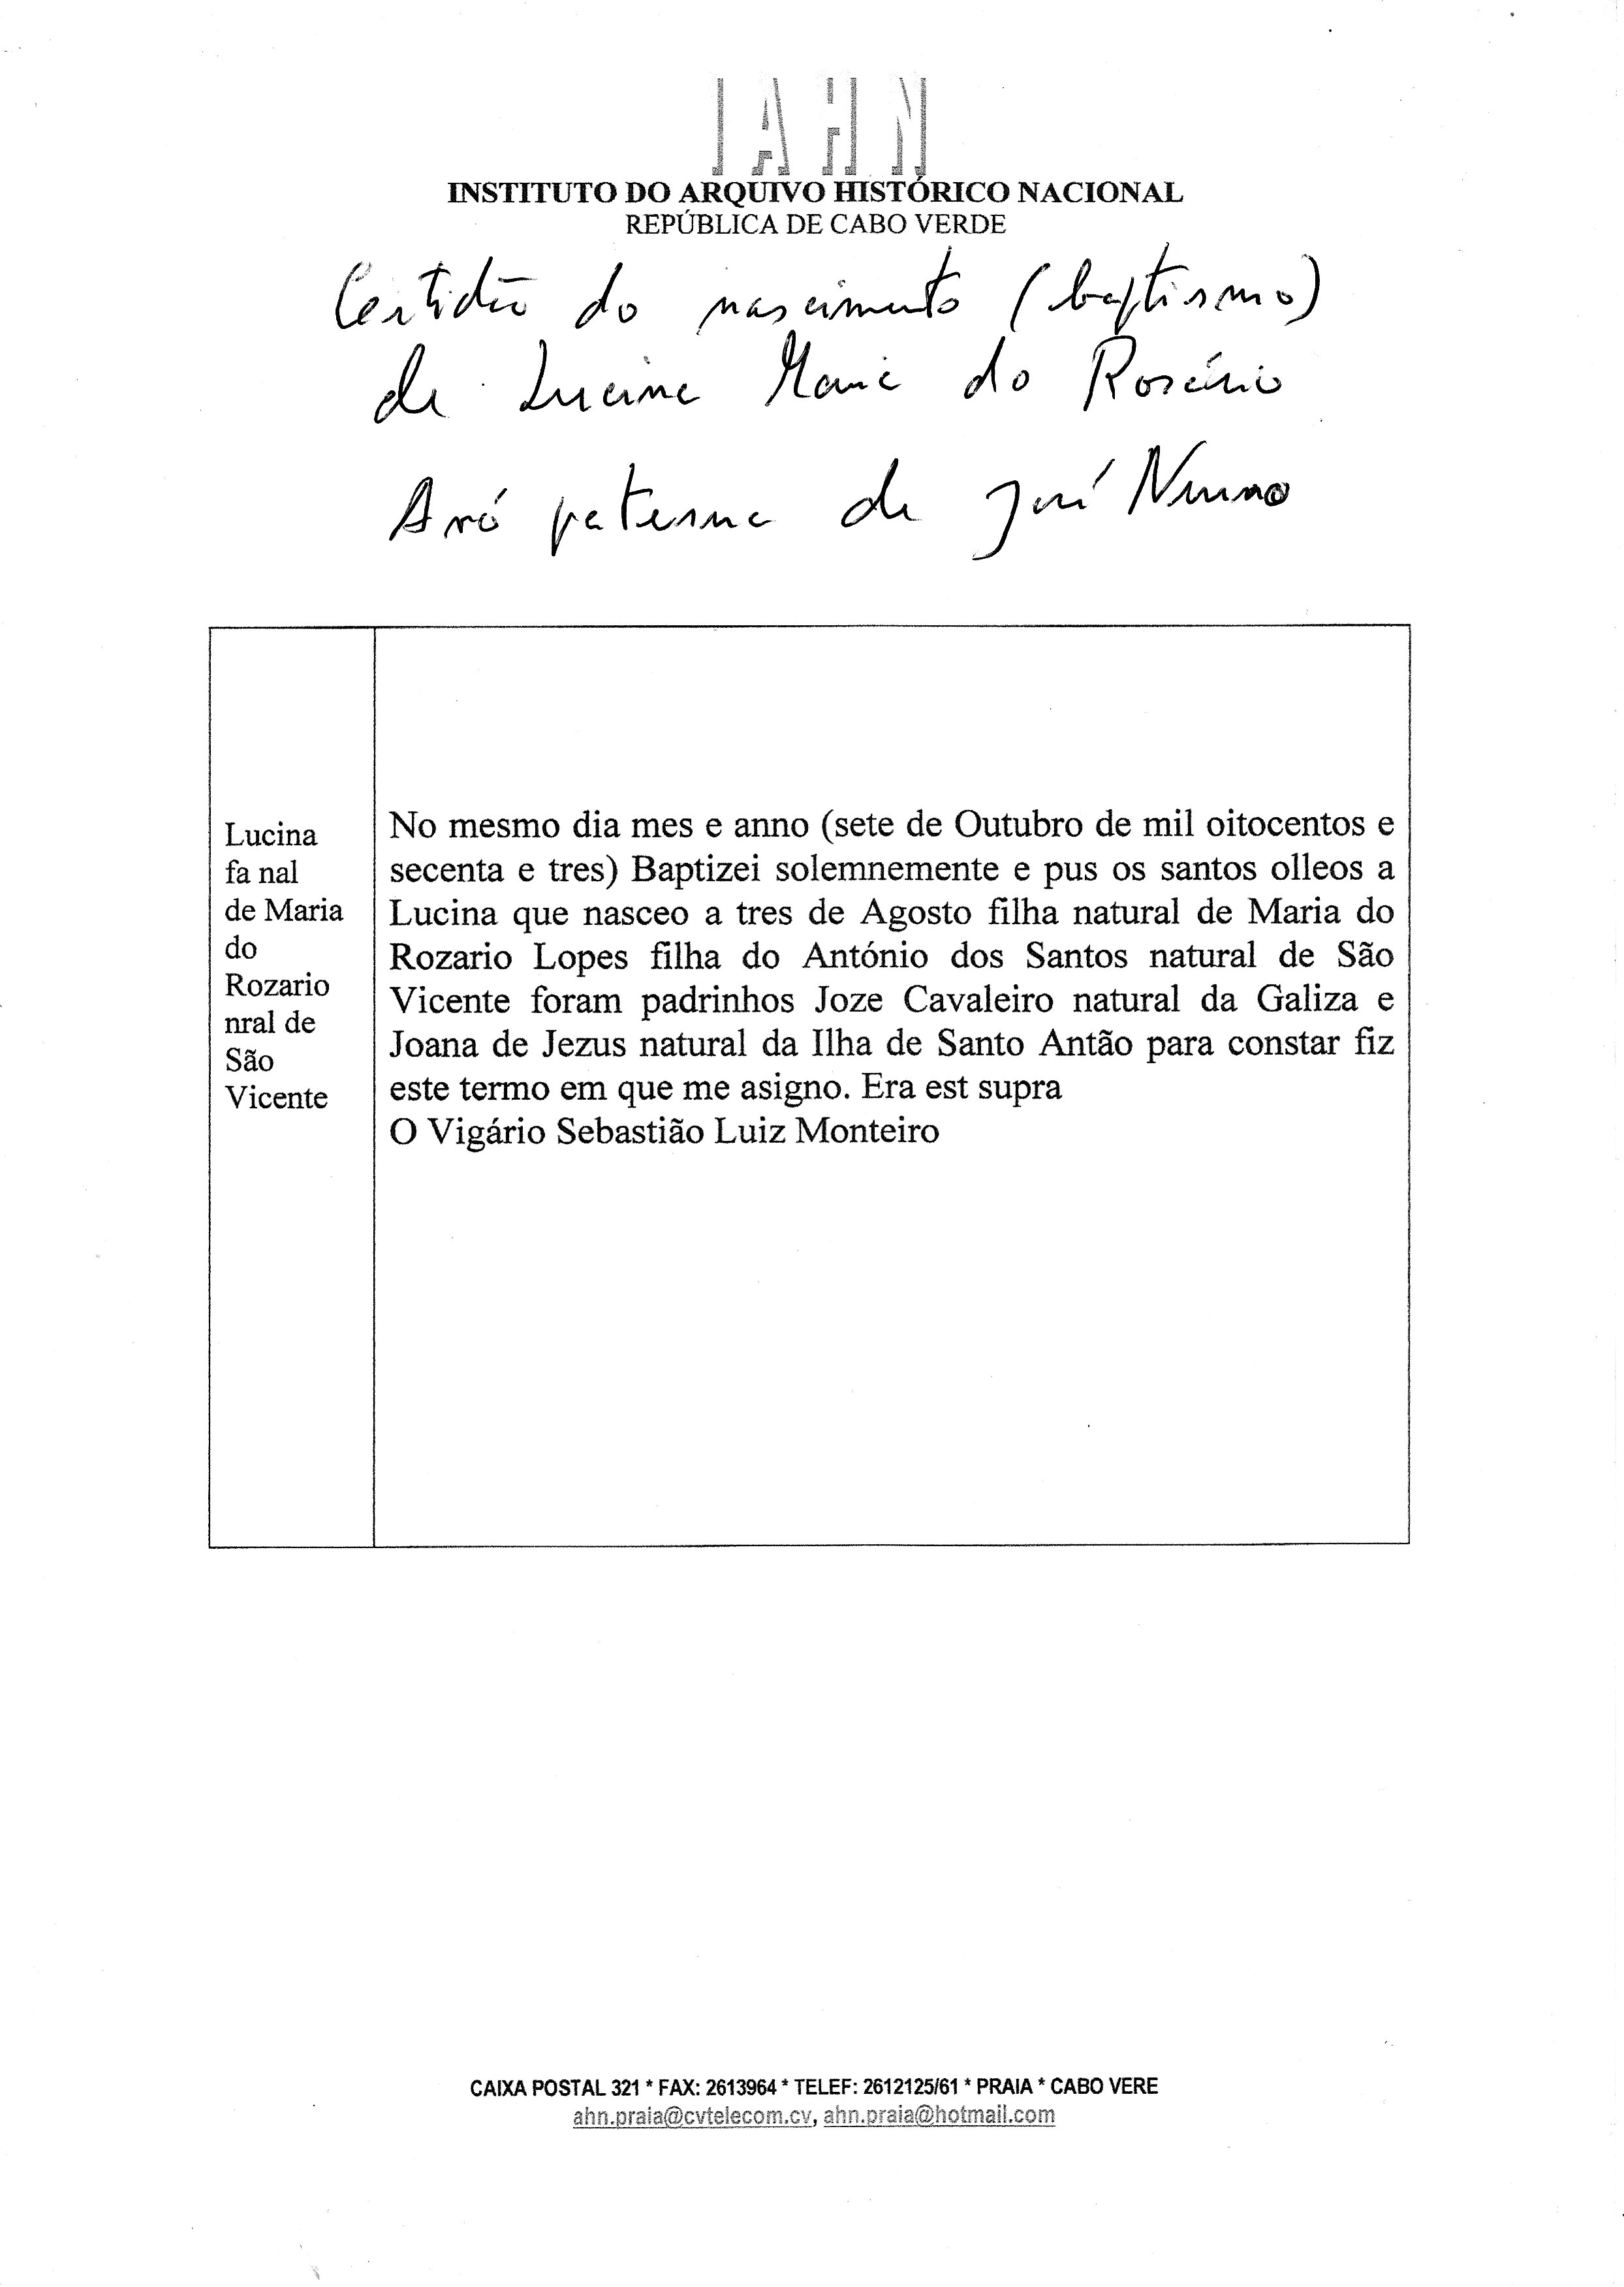 IAHN
INSTITUTO DO ARQUIVO HISTÓRICO NACIONAL
REPÚBLICA DE CABO VERDE
Certidão do nascimento (baptismo)
de Lucina Maria do Rosário
Avó paterna de José Nunno
Lucina
fa nal
de Maria
do
Rozario
nral de
São
Vicente
No mesmo dia mes e anno (sete de Outubro de mil oitocentos e
secenta e tres) Baptizei solemnemente e pus os santos olleos a
Lucina que nasceo a tres de Agosto filha natural de Maria do
Rozario Lopes filha do António dos Santos natural de São
Vicente foram padrinhos Joze Cavaleiro natural da Galiza e
Joana de Jezus natural da Ilha de Santo Antão para constar fiz
este termo em que me asigno. Era est supra
O Vigário Sebastião Luiz Monteiro
CAIXA POSTAL 321 * FAX: 2613964 * TELEF: 2612125/61 * PRAIA * CABO VERE
ahn.praia@cvtelecom.cv, ahn.praia@hotmail.com